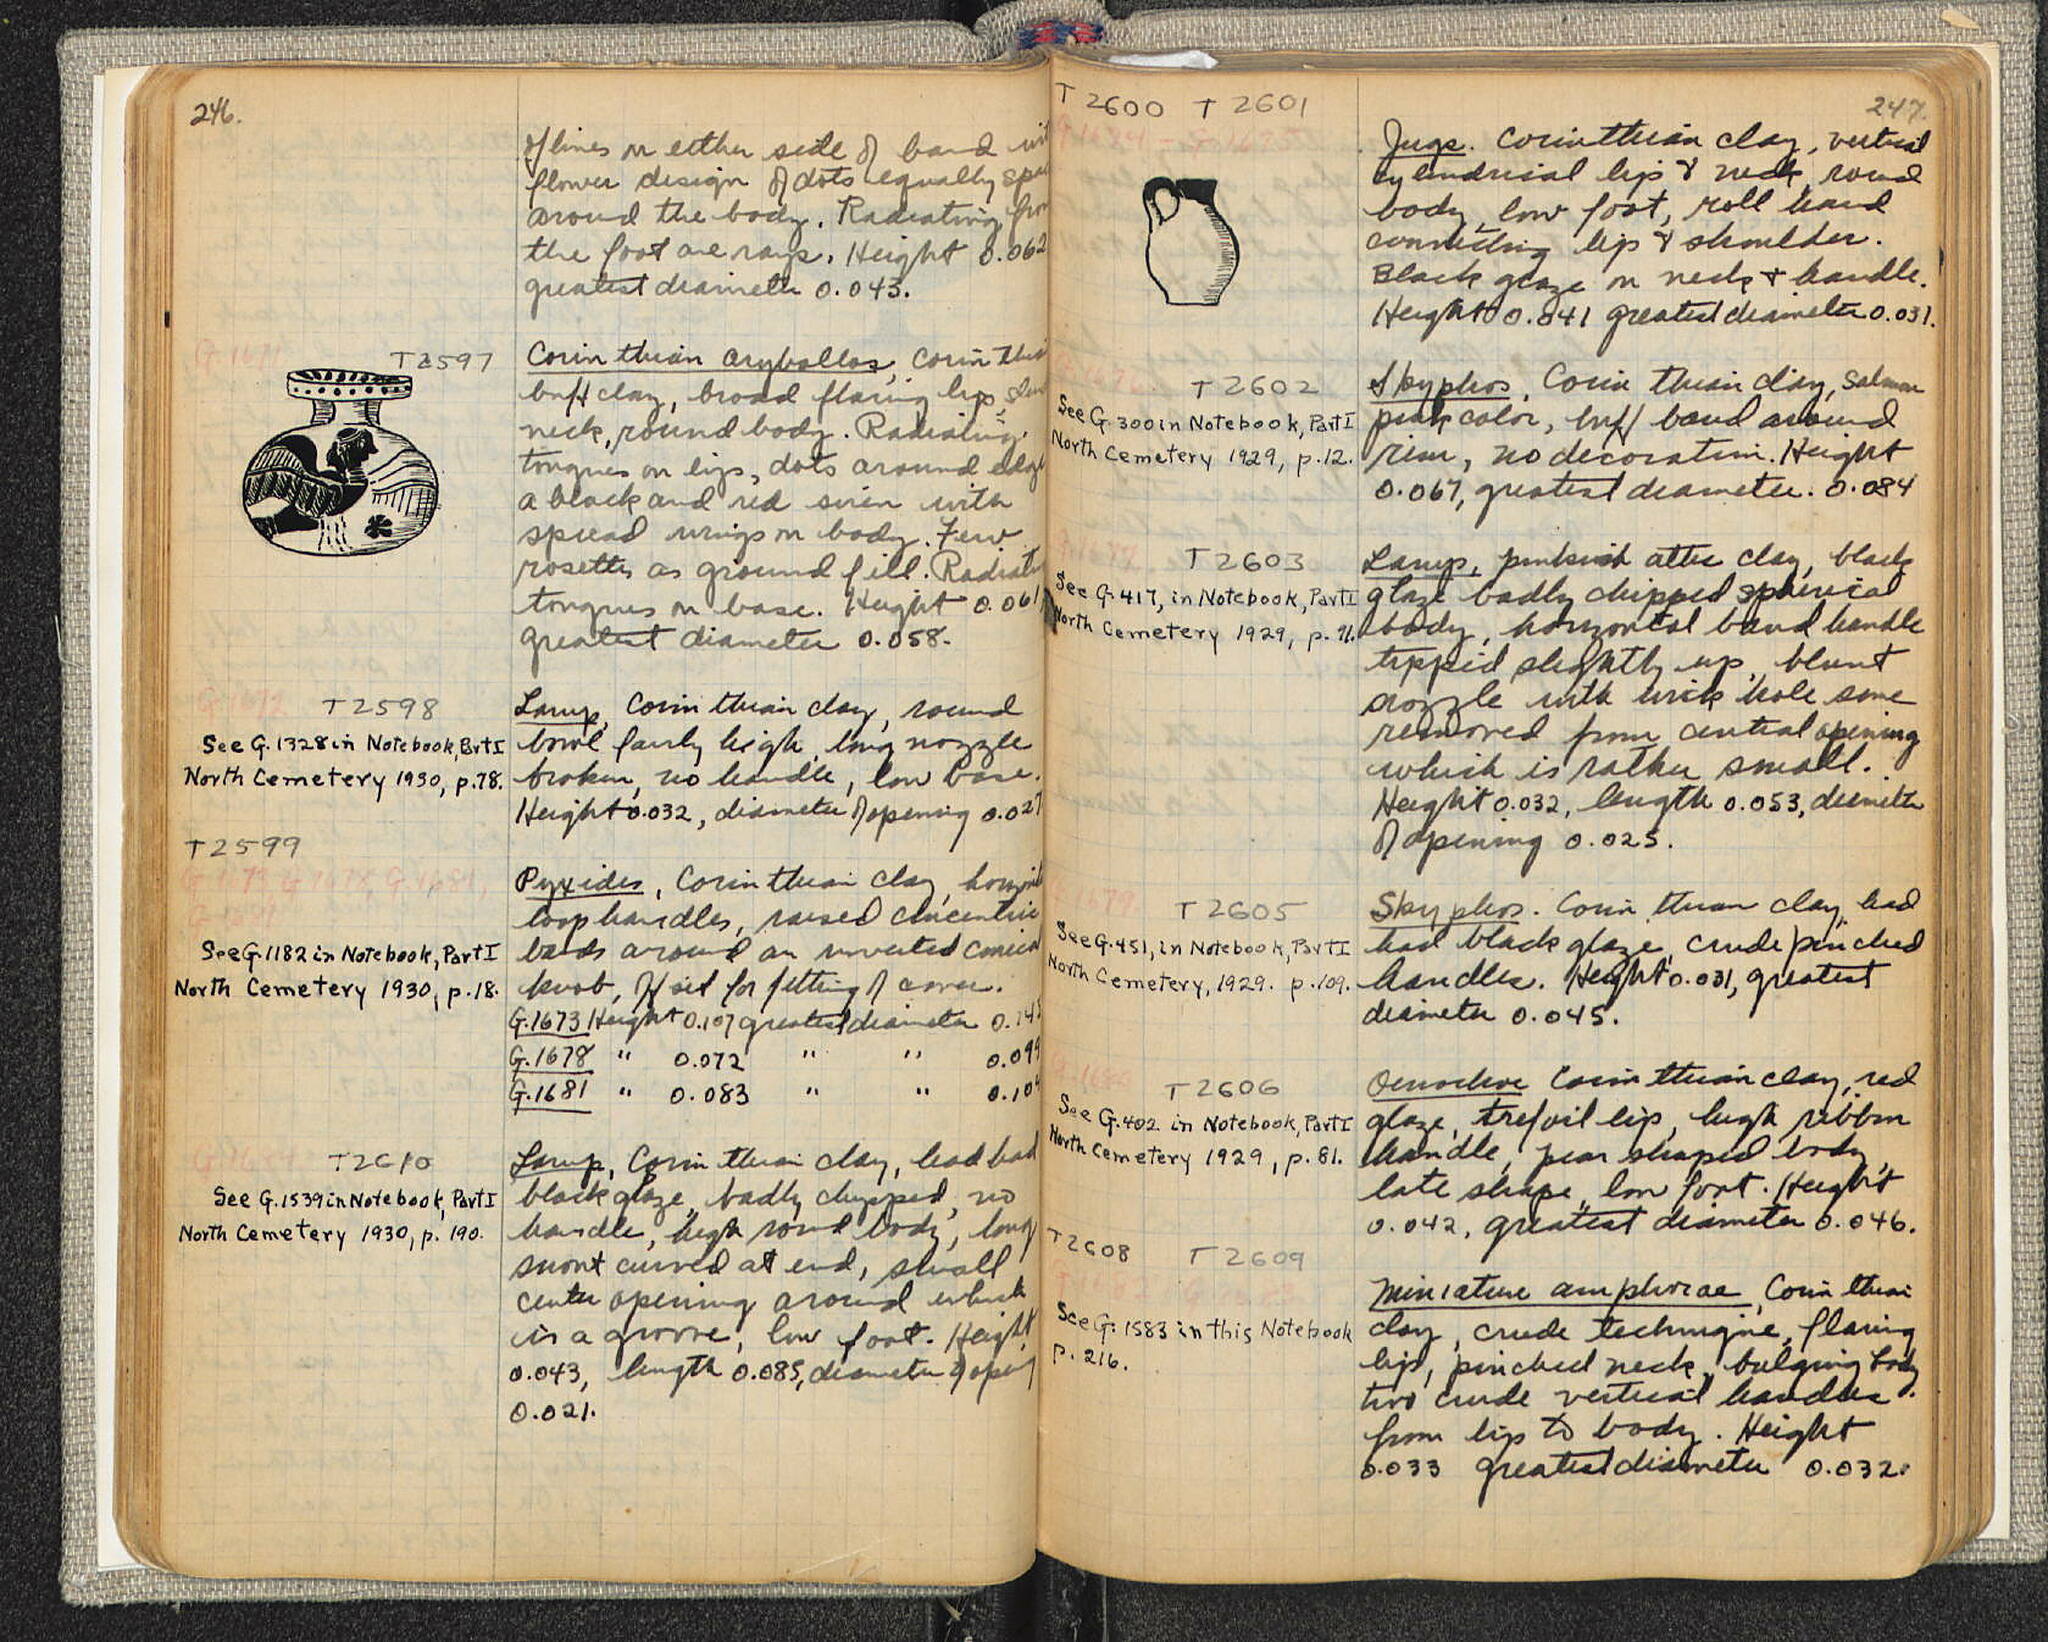 246.
of lines on either side of band
flower design of dots equally
around the body. Radiating from
the foot are rays. Height 0.062
greatest diameter 0.043.
T2597
Corinthian aryballos, Corinthian
buff clay, broad flaring lip,
neck, round body. Radiating
tongues on lip, dots around edge
a black and red siren with
spread wings on body. Few
rosettes as ground fill. Radiating
tongues on base. Height 0.061
greatest diameter 0.058.
T2598
See G.1328 in Notebook, Part I
North Cemetery 1930, p.78.
Lamp, Corinthian clay, round
bowl fairly high, long nozzle
broken, no handle, low base.
Height 0.032, diameter of opening 0.027
T2599
G.1673 G.1678, G.1681,
See G.1182 in Notebook, Part I
North Cemetery 1930, p.18.
Pyxides, Corinthian clay,
loop handles, raised concentric
bands around an inverted conical
knob, offset for fitting of cover.
G.1673 Height 0.107 greatest diameter
G.1678 " 0.072 " " 0.099
G.1681 " 0.083 " " 0.104
T2610
See G.1539 in Notebook, Part I
North Cemetery 1930, p. 190.
Lamp, Corinthian clay, had bad
black glaze, badly chipped, no
handle, high round body, long
snout curved at end, small
center opening around which
is a groove, low foot. Height
0.043, length 0.085, diameter of
0.021.
T 2600 T 2601
247.
Jugs. Corinthian clay, vertical
cylindrical lip & neck, round
body, low foot, roll hand
connecting lip & shoulder.
Black glaze on neck & handle.
Height 0.041 greatest diameter 0.031.
T 2602
See G.300 in Notebook, Part I
North Cemetery 1929, p.12.
Skyphos, Corinthian clay, salmon
pink color, buff band around
rim, no decoration. Height
0.067, greatest diameter. 0.084
T 2603
See G.417, in Notebook, Part I
North Cemetery 1929, p. 91.
Lamp, pinkish attic clay, black
glaze badly chipped spherical
body, horizontal band handle
tipped slightly up, blunt
nozzle with wick hole some
removed from central opening
which is rather small.
Height 0.032, length 0.053, diameter
of opening 0.025.
T 2605
See G.451, in Notebook, Part I
North Cemetery, 1929. p.109.
Skyphos. Corinthian clay, had
bad black glaze, crude pinched
handles. Height 0.031, greatest
diameter 0.045.
T 2606
See G.402 in Notebook, Part I
North Cemetery 1929, p. 81.
Oenochoe Corinthian clay, red
glaze, trefoil lip, high ribbon
handle, pear shaped body,
late shape, low foot. Height
0.042, greatest diameter 0.046.
T2608 T 2609
See G. 1583 in this Notebook
p. 216.
Miniature amphorae, Corinthian
clay, crude technique, flaring
lip, pinched neck, bulging body
two crude vertical handles
from lip to body. Height
0.033 greatest diameter 0.032.